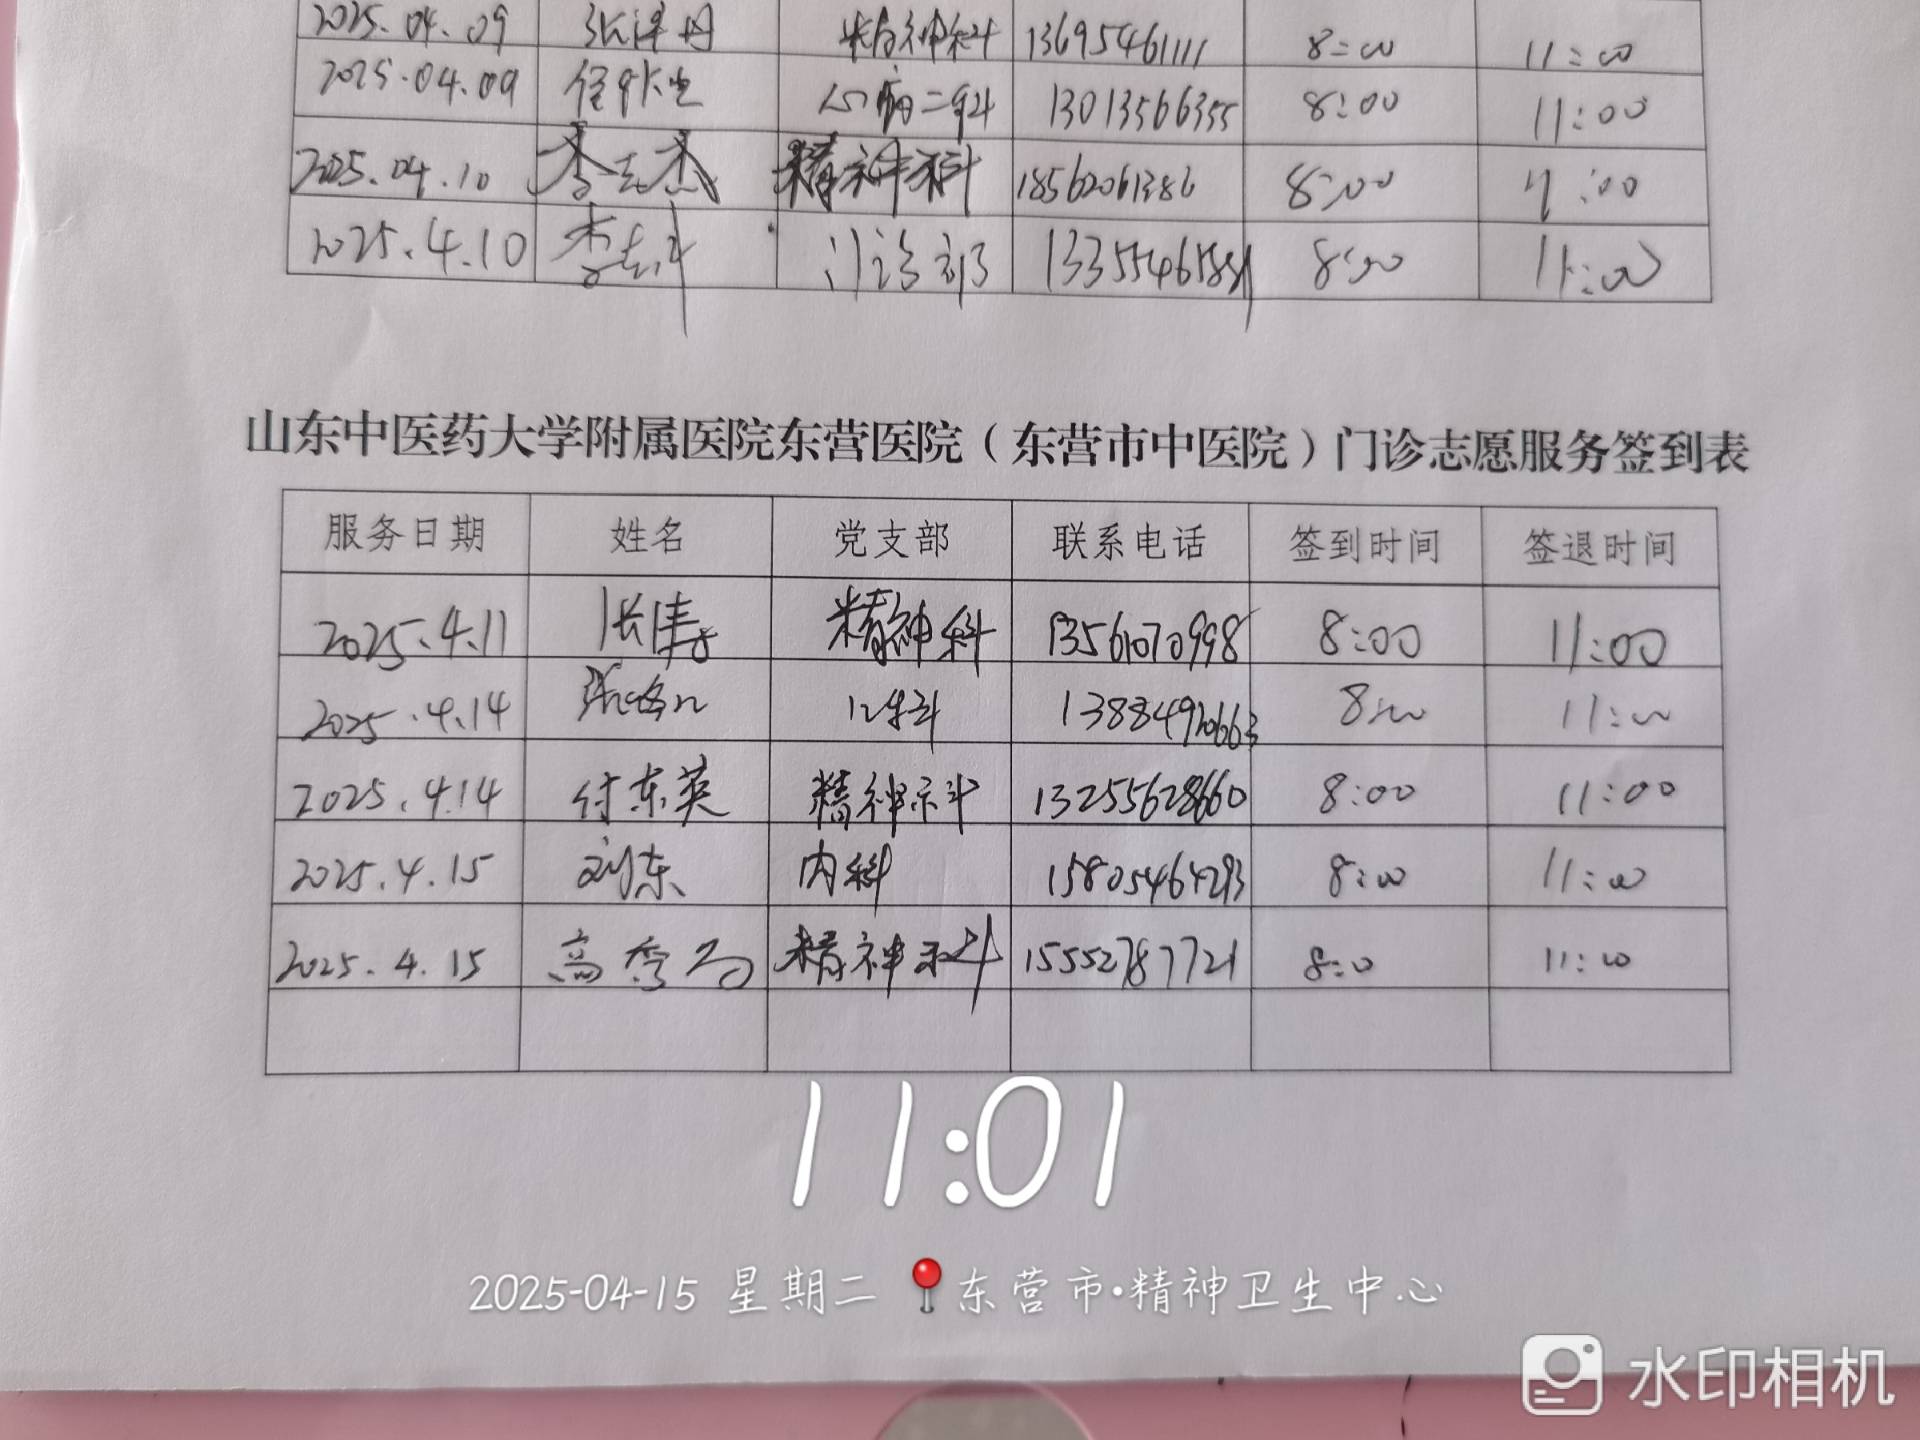 2025.04.09 精神科 13695461111 8:00 11:00
2025.04.09 心病二科 13013566355 8:00 11:00
2025.04.10 李志杰 精神科 18562061386 8:00 11:00
2025.4.10 门诊部 8:00 11:00
山东中医药大学附属医院东营医院（东营市中医院）门诊志愿服务签到表
服务日期 姓名 党支部 联系电话 签到时间 签退时间
2025.4.11 张涛 精神科 13561070998 8:00 11:00
2025.4.14 13884920663 8:00 11:00
2025.4.14 付东英 精神科 13255628660 8:00 11:00
2025.4.15 刘东 内科 15805464293 8:00 11:00
2025.4.15 精神科 15552787721 8:0 11:00
11:01
2025-04-15 星期二 东营市·精神卫生中心
水印相机